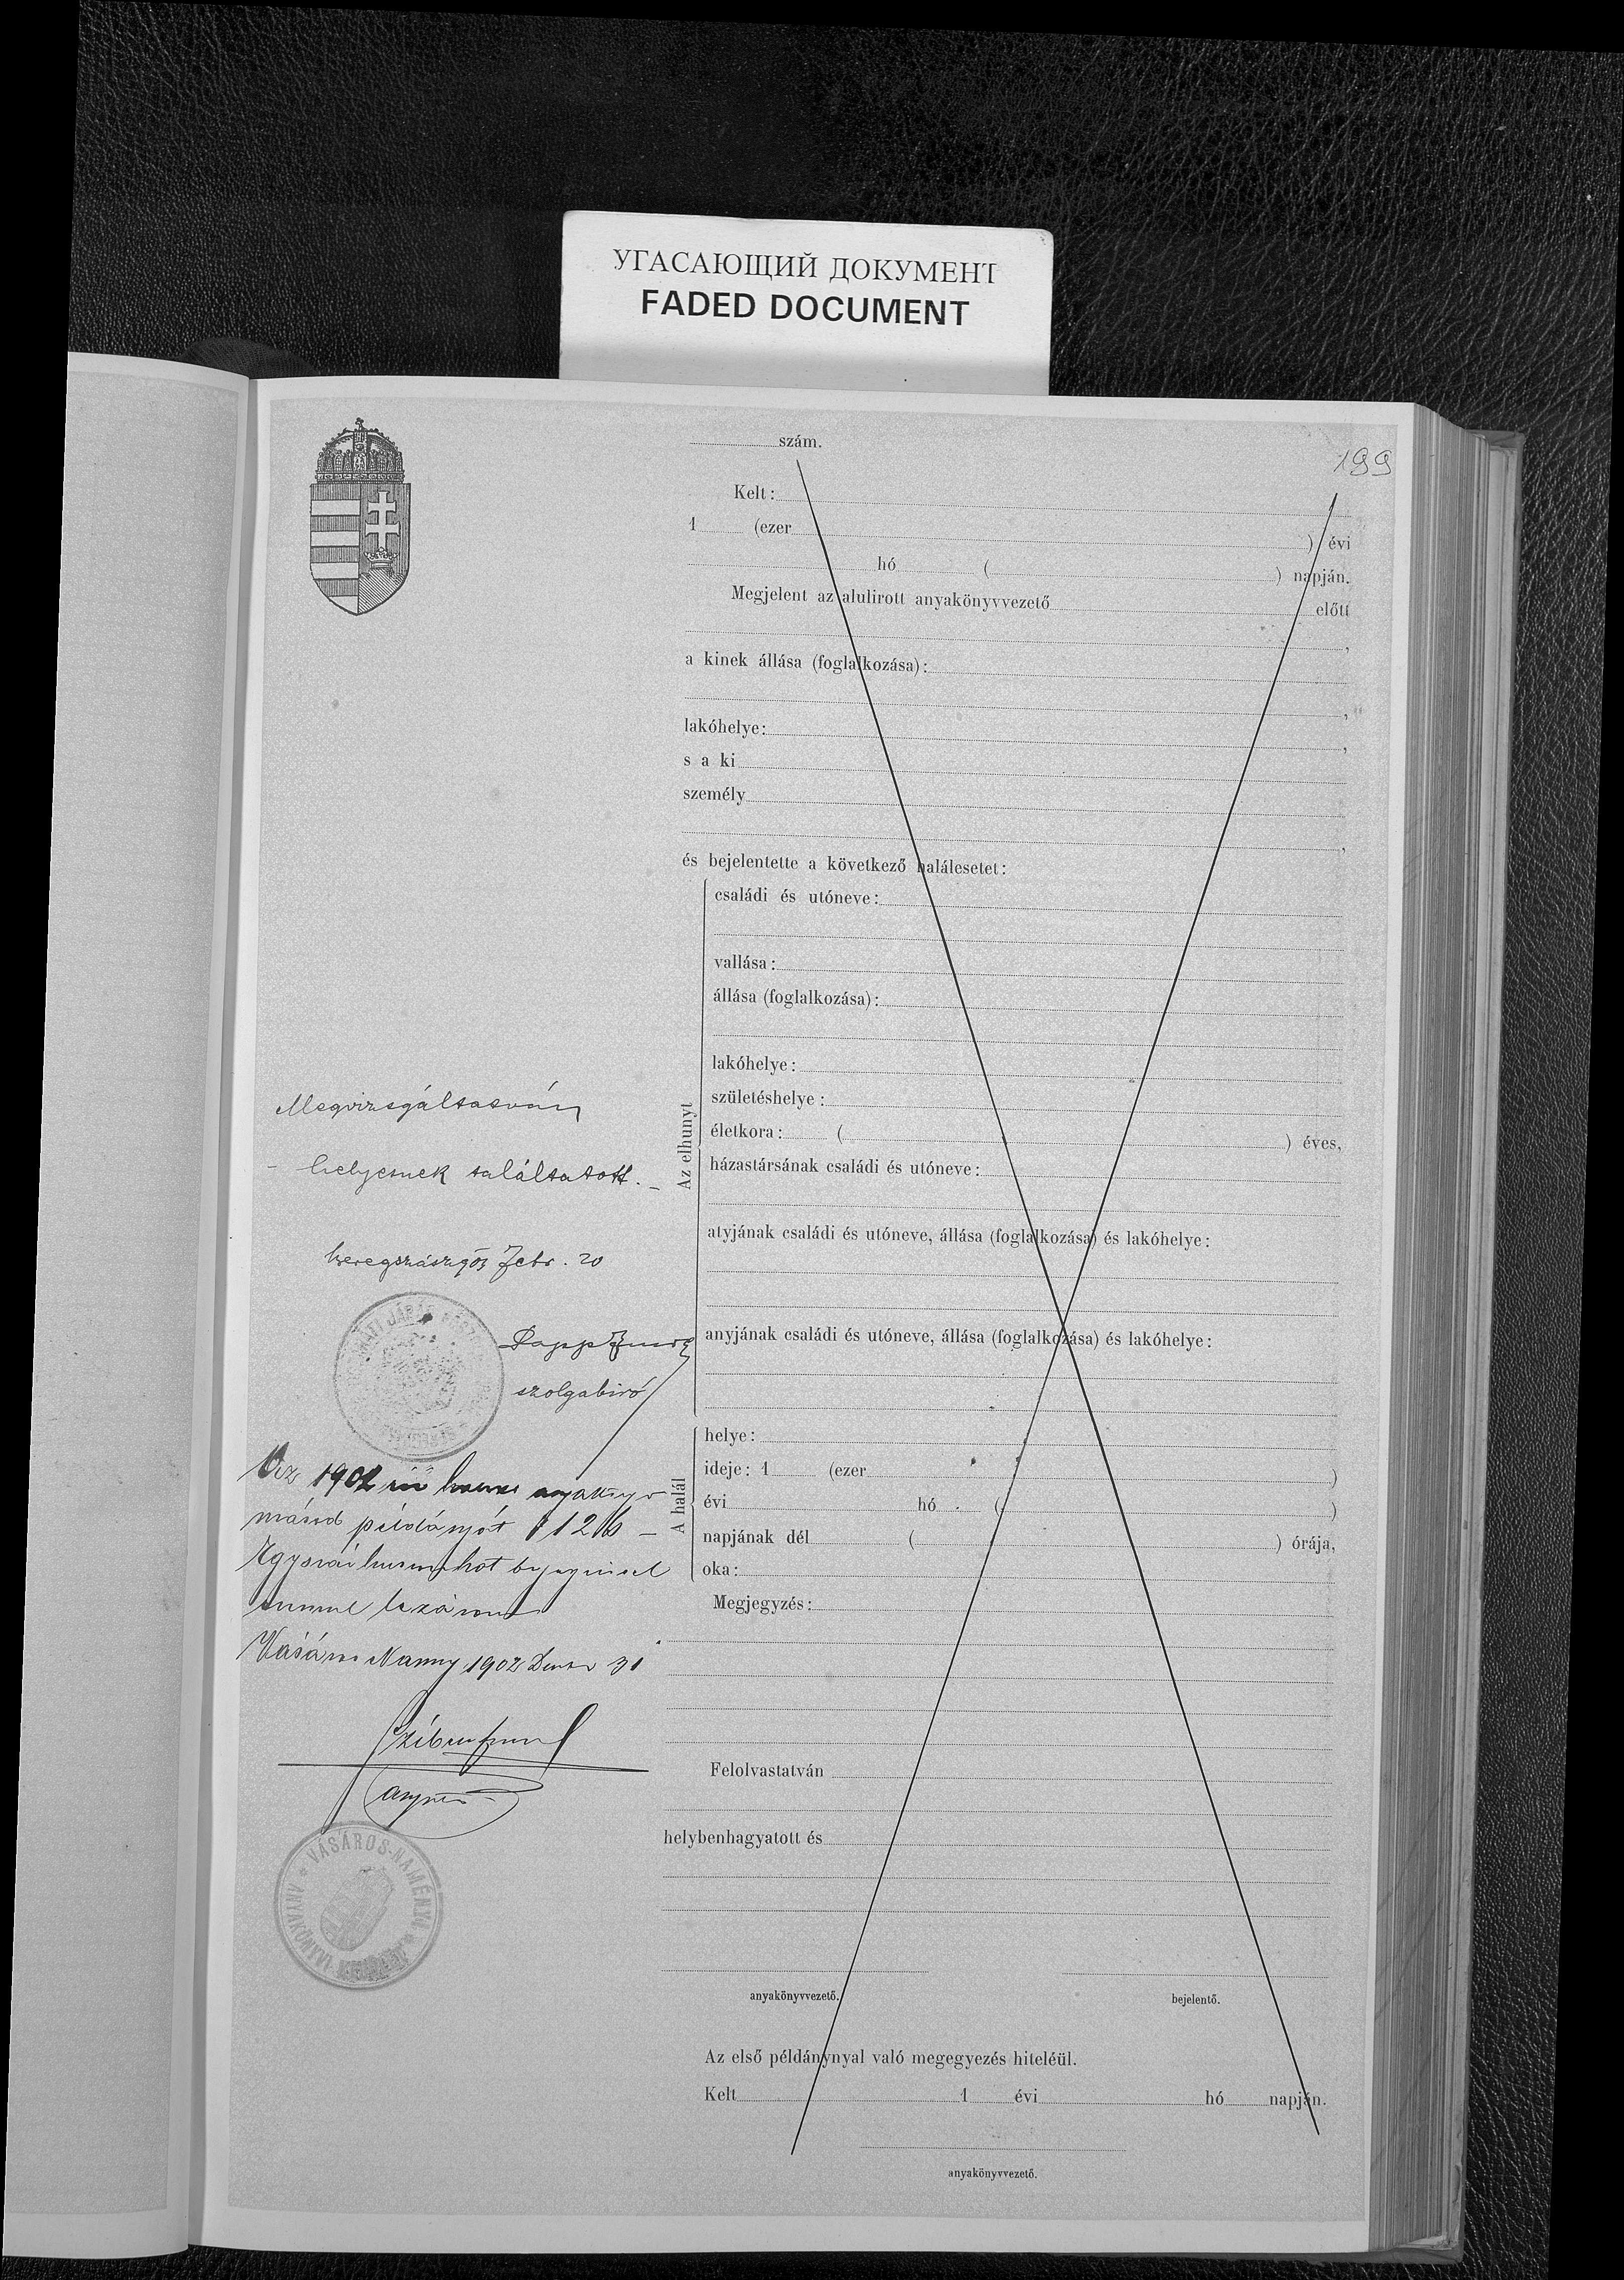 УГАСАЮЩИЙ ДОКУМЕНТ
FADED DOCUMENT
199
szám.
Kelt:
1 (ezer ) évi
hó ( ) napján.
Megjelent az alulirott anyakönyvvezető előtt
,
a kinek állása (foglalkozása):
,
lakóhelye: ,
s a ki
személy
,
és bejelentette a következő halálesetet:
Az elhunyt
családi és utóneve:
vallása:
állása (foglalkozása):
lakóhelye:
születéshelye:
életkora: ( ) éves,
házastársának családi és utóneve:
atyjának családi és utóneve, állása (foglalkozása) és lakóhelye:
anyjának családi és utóneve, állása (foglalkozása) és lakóhelye:
A halál
helye:
ideje: 1 (ezer )
évi hó ( )
napjának dél ( ) órája,
oka:
Megjegyzés:
Felolvastatván
helybenhagyatott és
anyakönyvvezető. bejelentő.
Az első példánynyal való megegyezés hiteléül.
Kelt 1 évi hó napján.
anyakönyvvezető.
Megvizsgáltatván
helyesnek találtatott.
Beregszász 903 Febr. 20
Papp
szolgabiró
Az 1902
másod példányát 126
Egyszáz huszonhat
lezárom
Vásáros Namény 1902 31
VÁSÁROS-NAMÉNYI